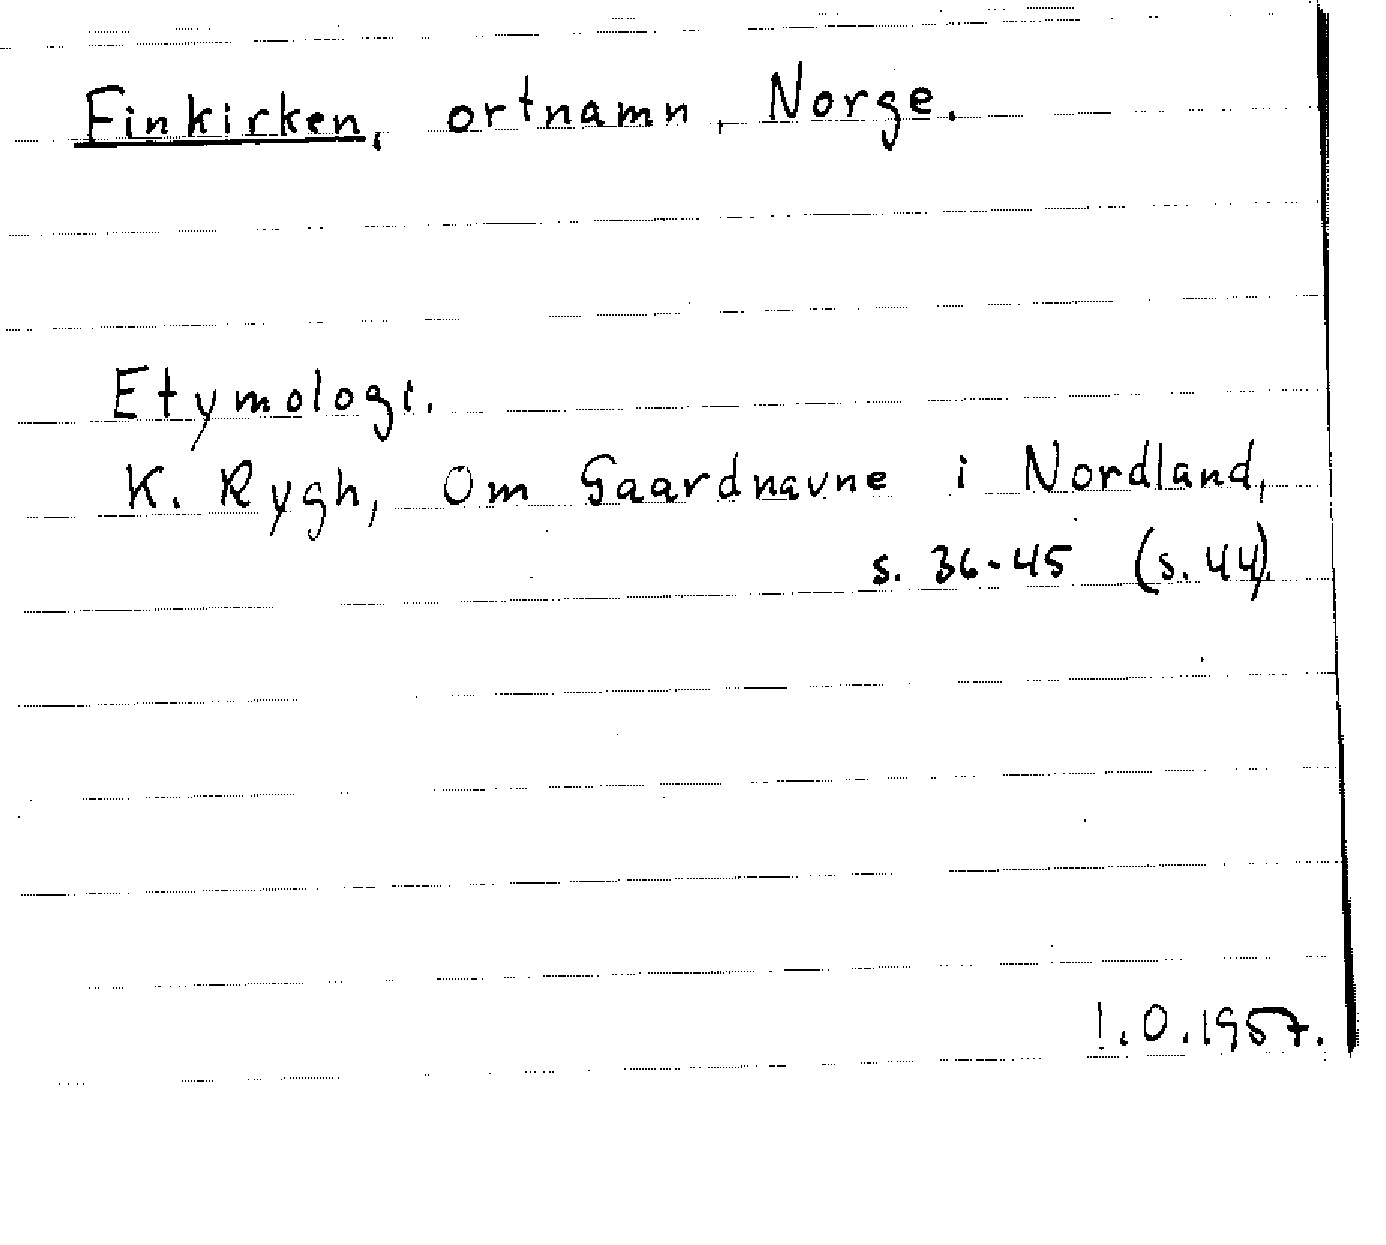 Finkirken, ortnamn, Norge.
Etymologi.
K. Rygh, Om Gaardnavne i Nordland,
s. 36-45 (s. 44).
I.O.1957.